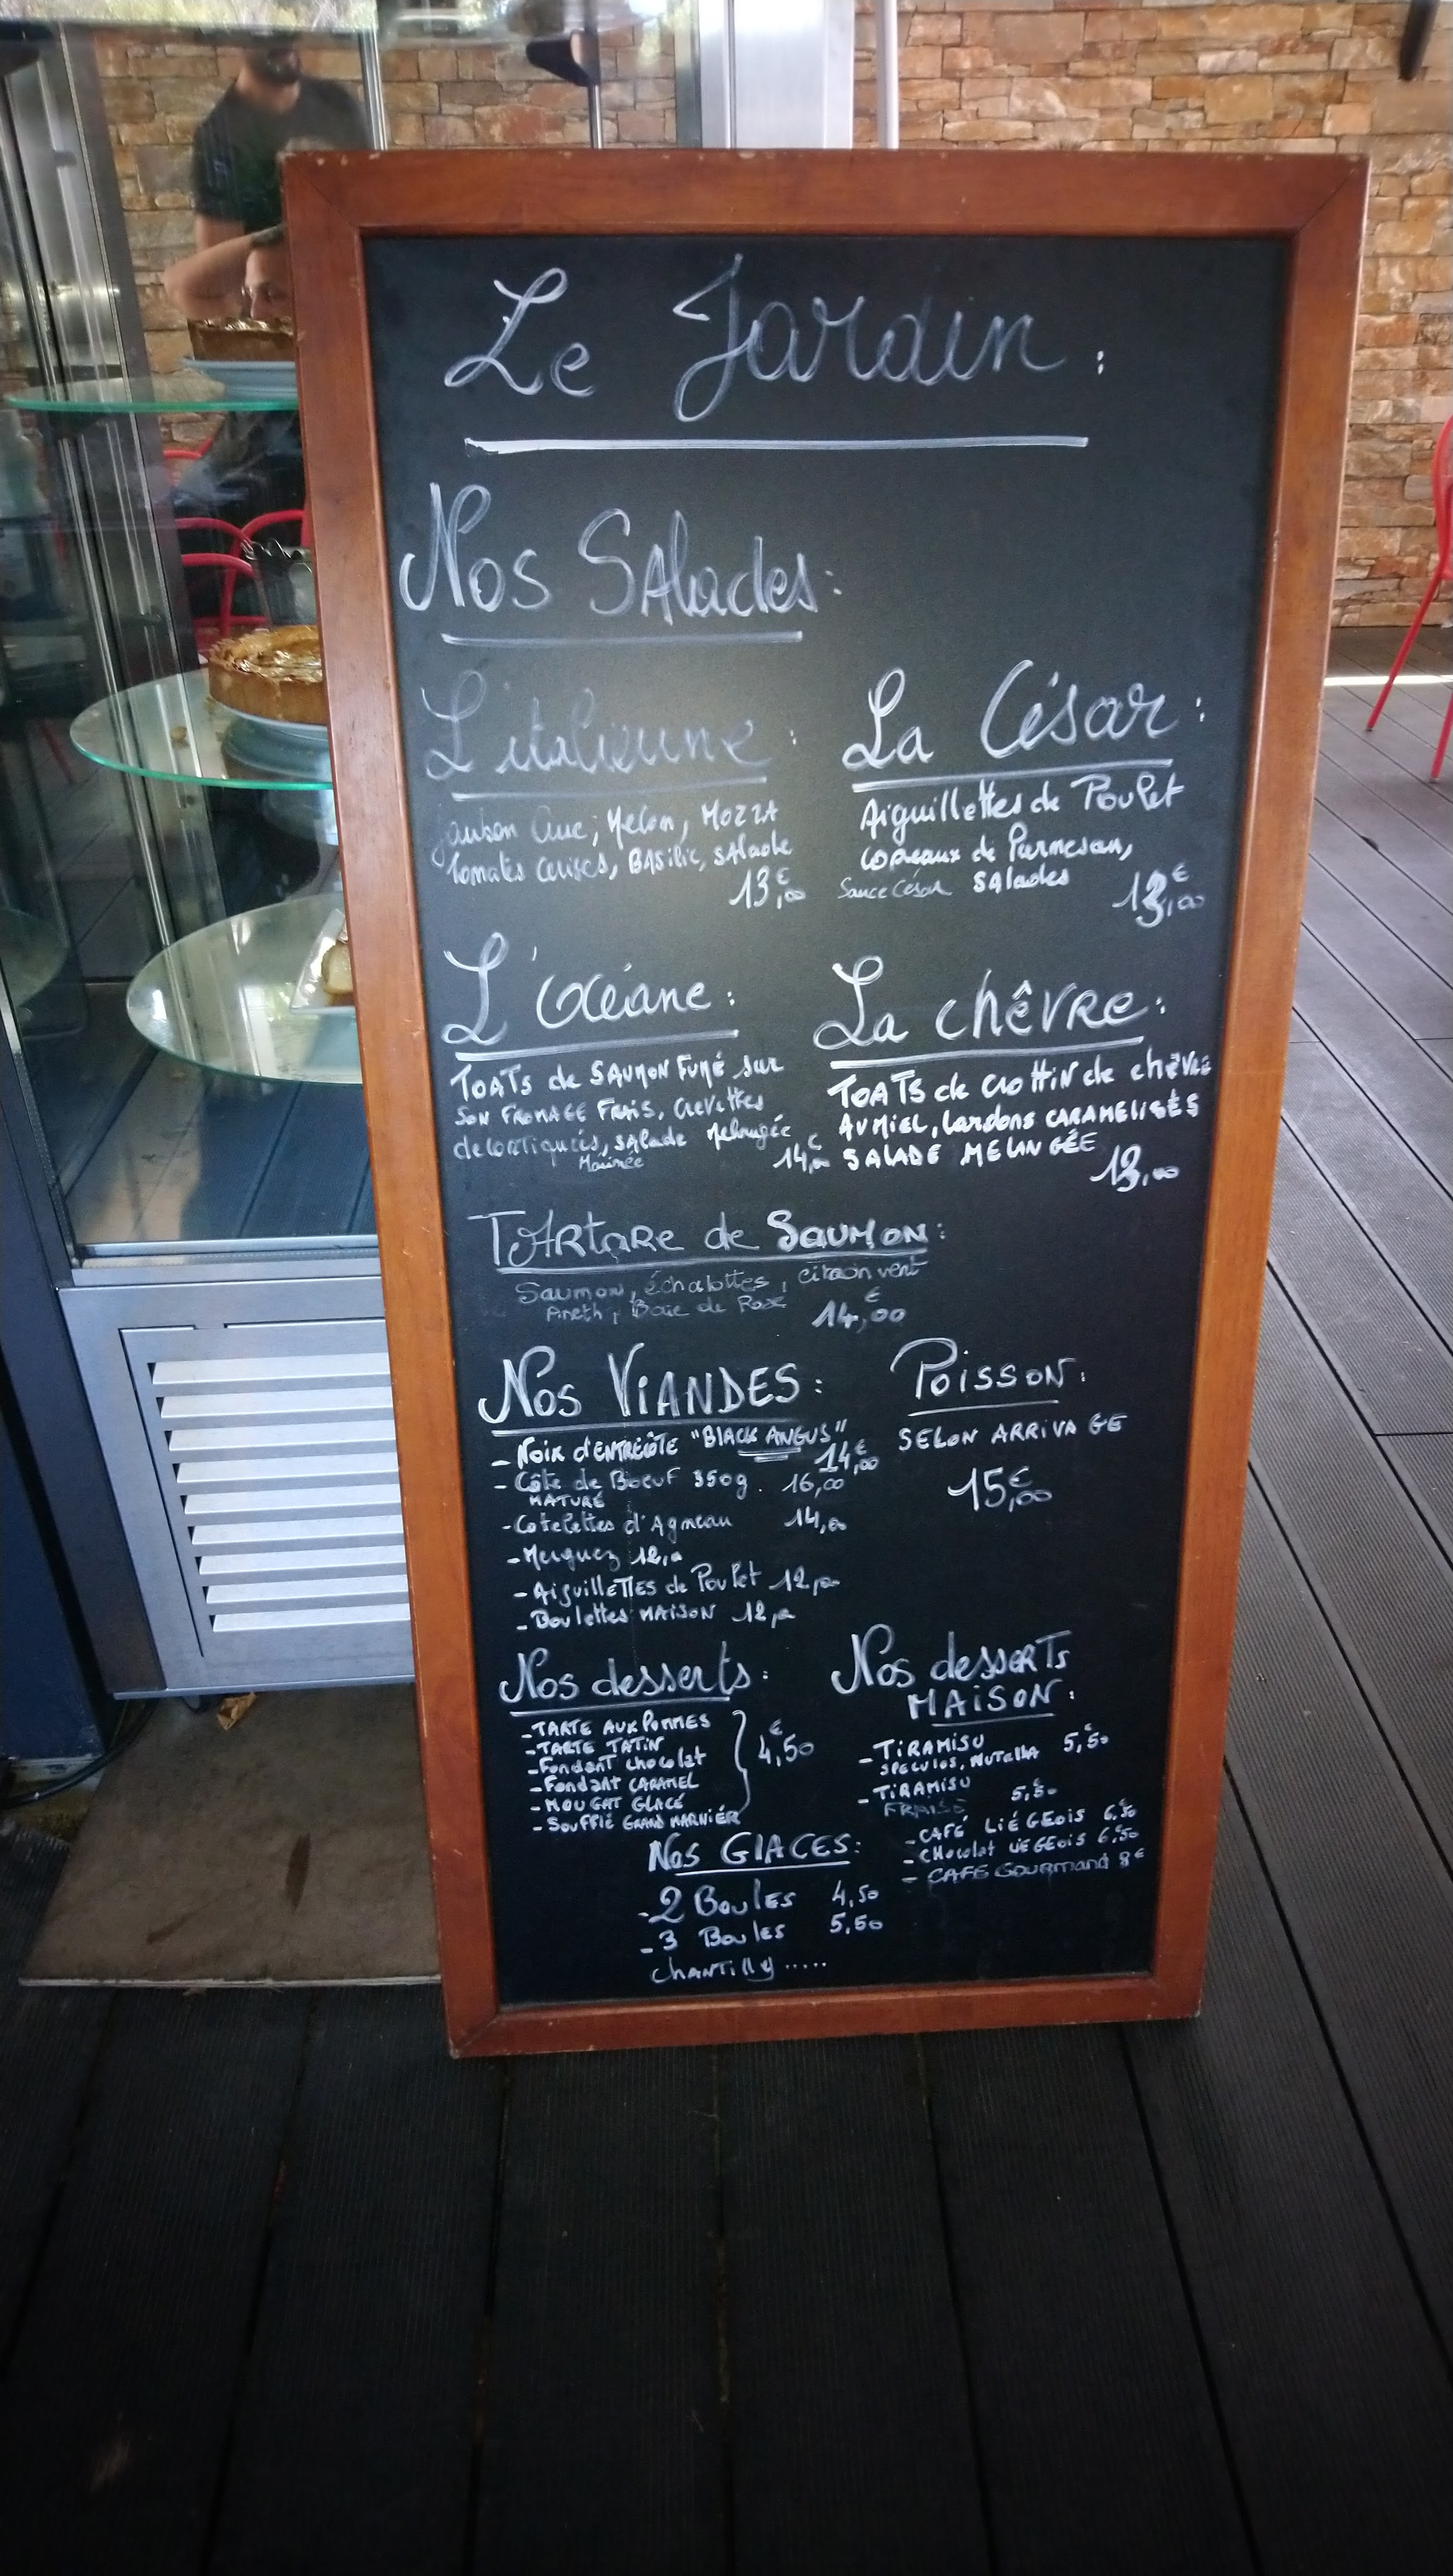 Le Jardin :
Nos SAlades :
L'italienne :
Jambon Cru, Melon, MOZZA
Tomates Cerises, BASilic, SAlade
13,00€
La César :
Aiguillettes de Poulet
Copeaux de Parmesan,
Sauce César SAlades
13,00€
L'Océane :
TOATS de SAUMON Fumé sur
SON FROMAGE FRAIS, Crevettes
decortiquées, SAlade Mélangée
Marinée
14,00€
La chêvRe :
TOATS de CROTTIN de chêvre
AU MIEL, lardons CARAMELISÉS
SALADE MELANGÉE
13,00
TARtaRe de SAUMON :
Saumon, échalottes, citron vert
Aneth, Baie de Rose
14,00€
Nos VIANDES :
- NOIX d'ENTRECÔTE "BLACK ANGUS"
14,00€
- Côte de Boeuf 350g. 16,00
MATURÉ
- Cotelettes d'Agneau 14,00
- Merguez 12,00
- AiguilleTTES de Poulet 12,00
- Boulettes MAISON 12,00
POISSON :
SELON ARRIVAGE
15,00€
Nos desserts :
- TARTE AUX POMMES
- TARTE TATIN
- Fondant chocolat
- Fondant CARAMEL
- NOUGAT GLACÉ
- SOUFFLÉ GRAND MARNIÉR
4,50€
Nos desserTs
MAiSON :
- TIRAMISU 5,50€
SPECULOS, NUTELLA
- TIRAMISU 5,50€
FRAISE
- CAFÉ LIÉGEOIS 6,50€
- CHocolat LIEGEOIS 6,50€
- CAFE Gourmand 8€
Nos GLACES :
- 2 BOULES 4,50
- 3 BOULES 5,50
CHANTILLY .....